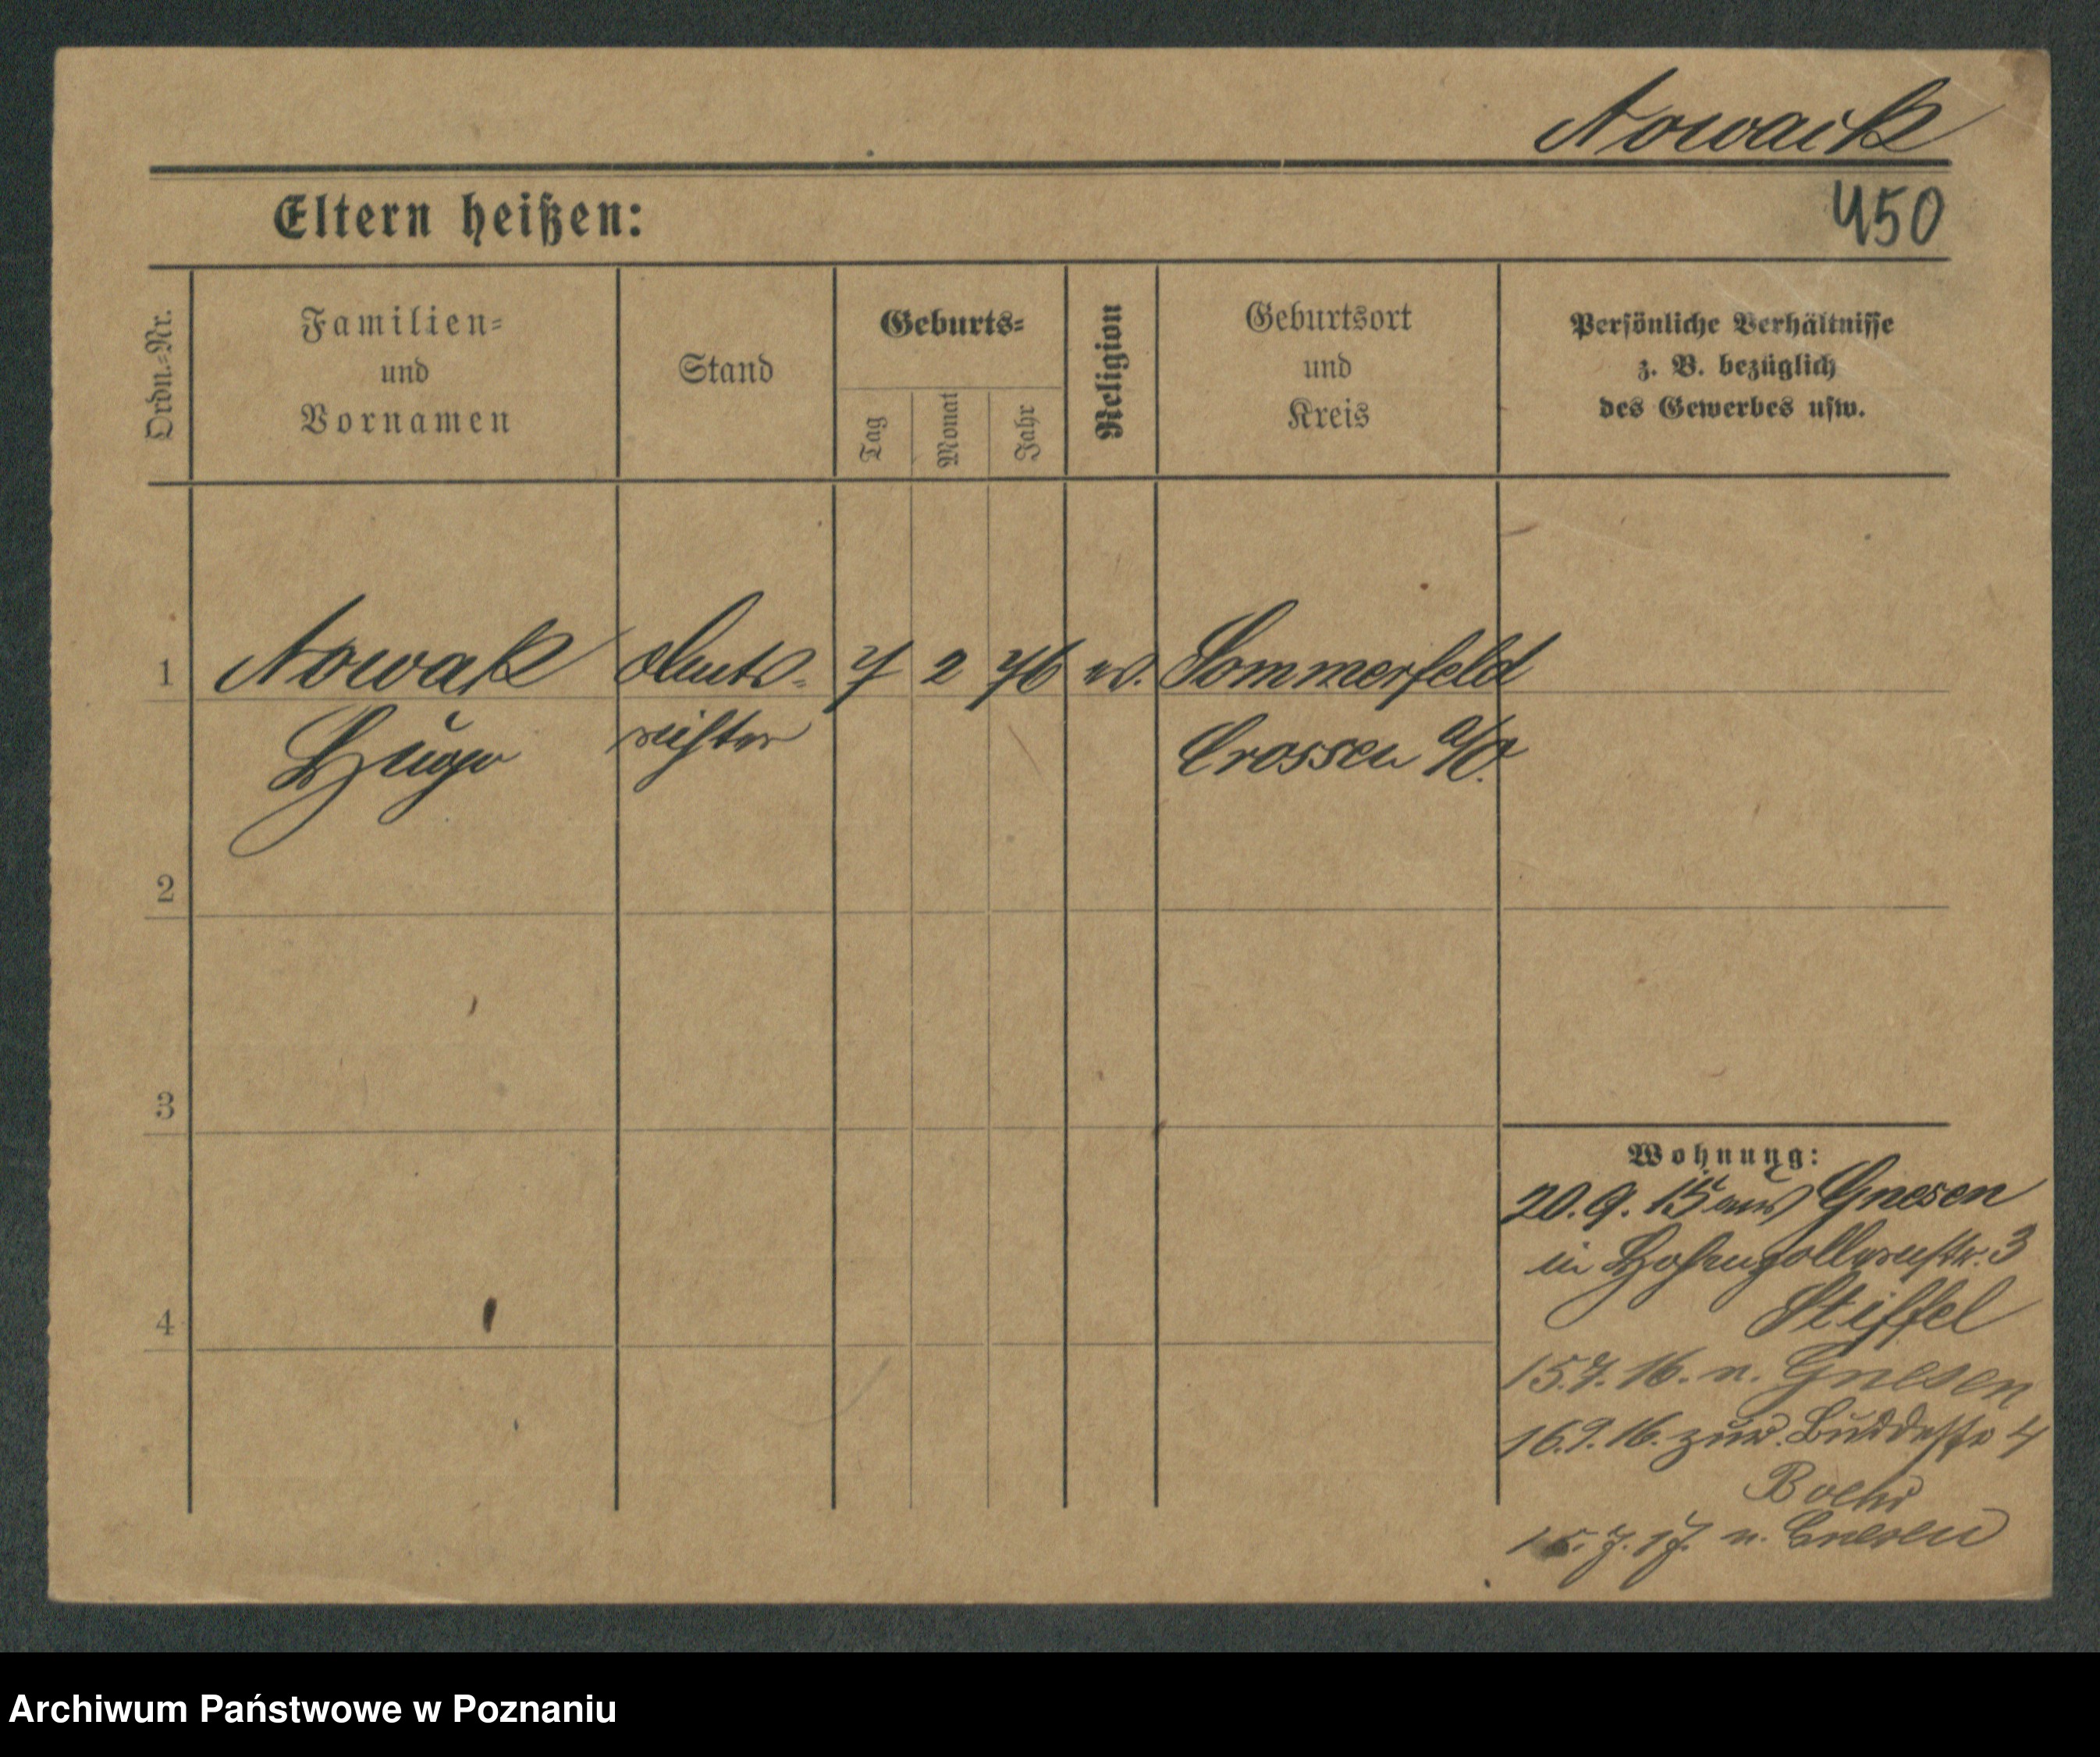 Nowack
450
Eltern heißen:
Ordn.=Nr.
Familien=
und
Vornamen
Stand
Geburts=
Tag
Monat
Jahr
Religion
Geburtsort
und
Kreis
Persönliche Verhältnisse
z. B. bezüglich
des Gewerbes usw.
1 Nowak Amts= 7 2 76 ev. Sommerfeld
Hugo richter Crossen a/O.
2
3
4
Wohnung:
20.9.15 aus Gnesen
in Hohenzollernstr. 3
Stiffel
15.7.16. n. Gnesen
16.9.16. zur. Buddestr 4
15.7.17. n. Gnesen
Archiwum Państwowe w Poznaniu